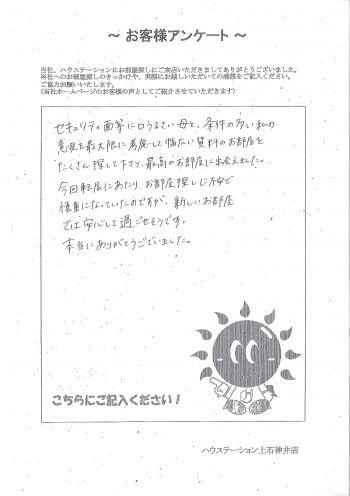 ～ お客様アンケート ～
当社、ハウステーションにお部屋探しにご来店いただきましてありがとうございました。
当社へのお部屋探しのきっかけや、実際にお越しいただいての感想をご記入ください。
ご協力お願いいたします。
(当社ホームページのお客様の声としてご紹介させていただきます)
セキュリティ面等に口うるさい母と、条件の多い私の
意見を最大限に考慮して幅広い資料のお部屋を
たくさん探して下さり、最高のお部屋に出会えました。
今回転居にあたり、お部屋探しに不安で
慎重になっていたのですが、新しいお部屋
では安心して過ごせそうです。
本当にありがとうございました。
こちらにご記入ください!
ハウステーション上石神井店